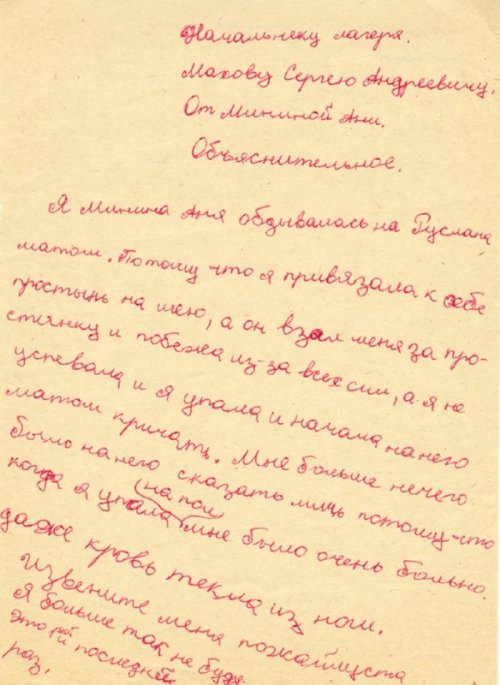 Начальнеку лагеря.
Махову Сергею Андреевичу.
От Мининой Ани.
Объяснительное.
Я Минина Аня обдывалась на Руслана
матом. Потому что я привязала к себе
простынь на шею, а он взял меня за про-
стынку и побежа из-за всех сил, а я не
успевала и я упала и начала на него
матом кричать. Мне больше нечего
было на него сказать лишь потому-что
когда я упала на пол мне было очень больно.
даже кровь текла из ноги.
Извените меня пожайлуста
Я больше так не буду.
это последней
раз.